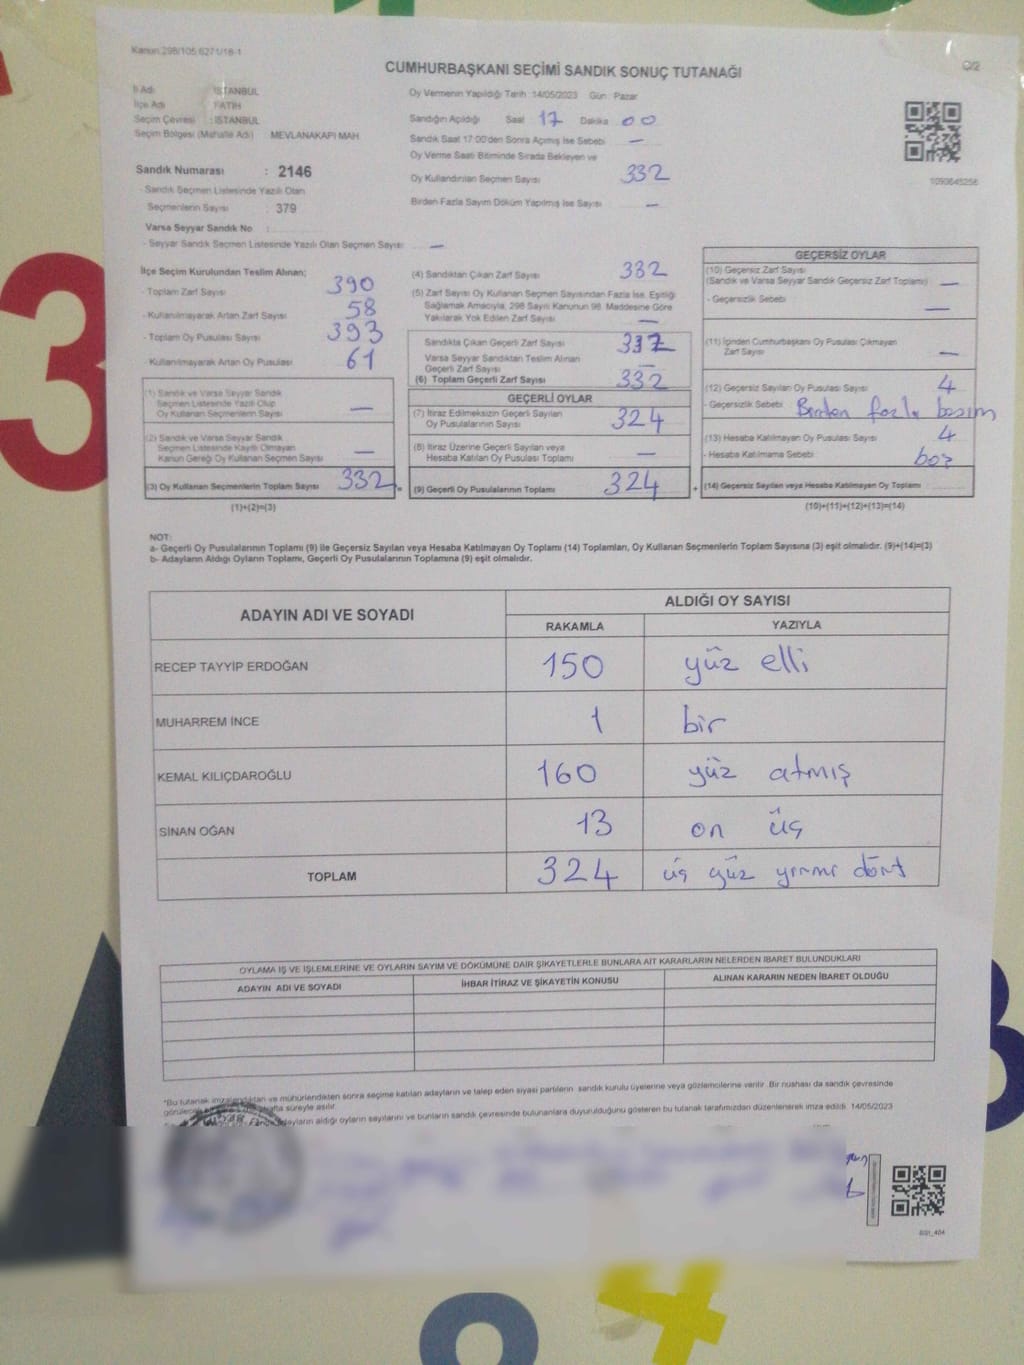 Kanun:298/105,6271/18-1
CUMHURBAŞKANI SEÇİMİ SANDIK SONUÇ TUTANAĞI
O/2
İl Adı : İSTANBUL
İlçe Adı : FATİH
Seçim Çevresi : İSTANBUL
Seçim Bölgesi (Mahalle Adı) : MEVLANAKAPI MAH
Sandık Numarası : 2146
- Sandık Seçmen Listesinde Yazılı Olan
Seçmenlerin Sayısı : 379
Varsa Seyyar Sandık No :
- Seyyar Sandık Seçmen Listesinde Yazılı Olan Seçmen Sayısı: —
Oy Vermenin Yapıldığı Tarih :14/05/2023 Gün : Pazar
Sandığın Açıldığı Saat 17 Dakika 00
Sandık Saat 17:00'den Sonra Açılmış İse Sebebi —
Oy Verme Saati Bitiminde Sırada Bekleyen ve
Oy Kullandırılan Seçmen Sayısı 332
Birden Fazla Sayım Döküm Yapılmış İse Sayısı —
1090645256
İlçe Seçim Kurulundan Teslim Alınan;
- Toplam Zarf Sayısı 390
- Kullanılmayarak Artan Zarf Sayısı 58
- Toplam Oy Pusulası Sayısı 393
- Kullanılmayarak Artan Oy Pusulası 61
(1) Sandık ve Varsa Seyyar Sandık
Seçmen Listesinde Yazılı Olup
Oy Kullanan Seçmenlerin Sayısı —
(2) Sandık ve Varsa Seyyar Sandık
Seçmen Listesinde Kayıtlı Olmayan
Kanun Gereği Oy Kullanan Seçmen Sayısı —
(3) Oy Kullanan Seçmenlerin Toplam Sayısı 332 =
(1)+(2)=(3)
(4) Sandıktan Çıkan Zarf Sayısı 332
(5) Zarf Sayısı Oy Kullanan Seçmen Sayısından Fazla İse, Eşitliği
Sağlamak Amacıyla, 298 Sayılı Kanunun 98. Maddesine Göre
Yakılarak Yok Edilen Zarf Sayısı —
Sandıkta Çıkan Geçerli Zarf Sayısı 332
Varsa Seyyar Sandıktan Teslim Alınan
Geçerli Zarf Sayısı —
(6) Toplam Geçerli Zarf Sayısı 332
GEÇERLİ OYLAR
(7) İtiraz Edilmeksizin Geçerli Sayılan
Oy Pusulalarının Sayısı 324
(8) İtiraz Üzerine Geçerli Sayılan veya
Hesaba Katılan Oy Pusulası Toplamı —
(9) Geçerli Oy Pusulalarının Toplamı 324 +
GEÇERSİZ OYLAR
(10) Geçersiz Zarf Sayısı
(Sandık ve Varsa Seyyar Sandık Geçersiz Zarf Toplamı) —
- Geçersizlik Sebebi —
(11) İçinden Cumhurbaşkanı Oy Pusulası Çıkmayan
Zarf Sayısı —
(12) Geçersiz Sayılan Oy Pusulası Sayısı 4
- Geçersizlik Sebebi Birden fazla basım
(13) Hesaba Katılmayan Oy Pusulası Sayısı 4
- Hesaba Katılmama Sebebi boş
(14) Geçersiz Sayılan veya Hesaba Katılmayan Oy Toplamı
(10)+(11)+(12)+(13)=(14)
NOT:
a- Geçerli Oy Pusulalarının Toplamı (9) ile Geçersiz Sayılan veya Hesaba Katılmayan Oy Toplamı (14) Toplamları, Oy Kullanan Seçmenlerin Toplam Sayısına (3) eşit olmalıdır. (9)+(14)=(3)
b- Adayların Aldığı Oyların Toplamı, Geçerli Oy Pusulalarının Toplamına (9) eşit olmalıdır.
ADAYIN ADI VE SOYADI ALDIĞI OY SAYISI
RAKAMLA YAZIYLA
RECEP TAYYİP ERDOĞAN 150 yüz elli
MUHARREM İNCE 1 bir
KEMAL KILIÇDAROĞLU 160 yüz atmış
SİNAN OĞAN 13 on üç
TOPLAM 324 üç yüz yirmi dört
OYLAMA İŞ VE İŞLEMLERİNE VE OYLARIN SAYIM VE DÖKÜMÜNE DAİR ŞİKAYETLERLE BUNLARA AİT KARARLARIN NELERDEN İBARET BULUNDUKLARI
ADAYIN ADI VE SOYADI İHBAR İTİRAZ VE ŞİKAYETİN KONUSU ALINAN KARARIN NEDEN İBARET OLDUĞU
*Bu tutanak imzalandıktan ve mühürlendikten sonra seçime katılan adayların ve talep eden siyasi partilerin sandık kurulu üyelerine veya gözlemcilerine verilir. Bir nüshası da sandık çevresinde
hafta süreyle asılır.
adayların aldığı oyların sayılarını ve bunların sandık çevresinde bulunanlara duyurulduğunu gösteren bu tutanak tarafımızdan düzenlenerek imza edildi. 14/05/2023